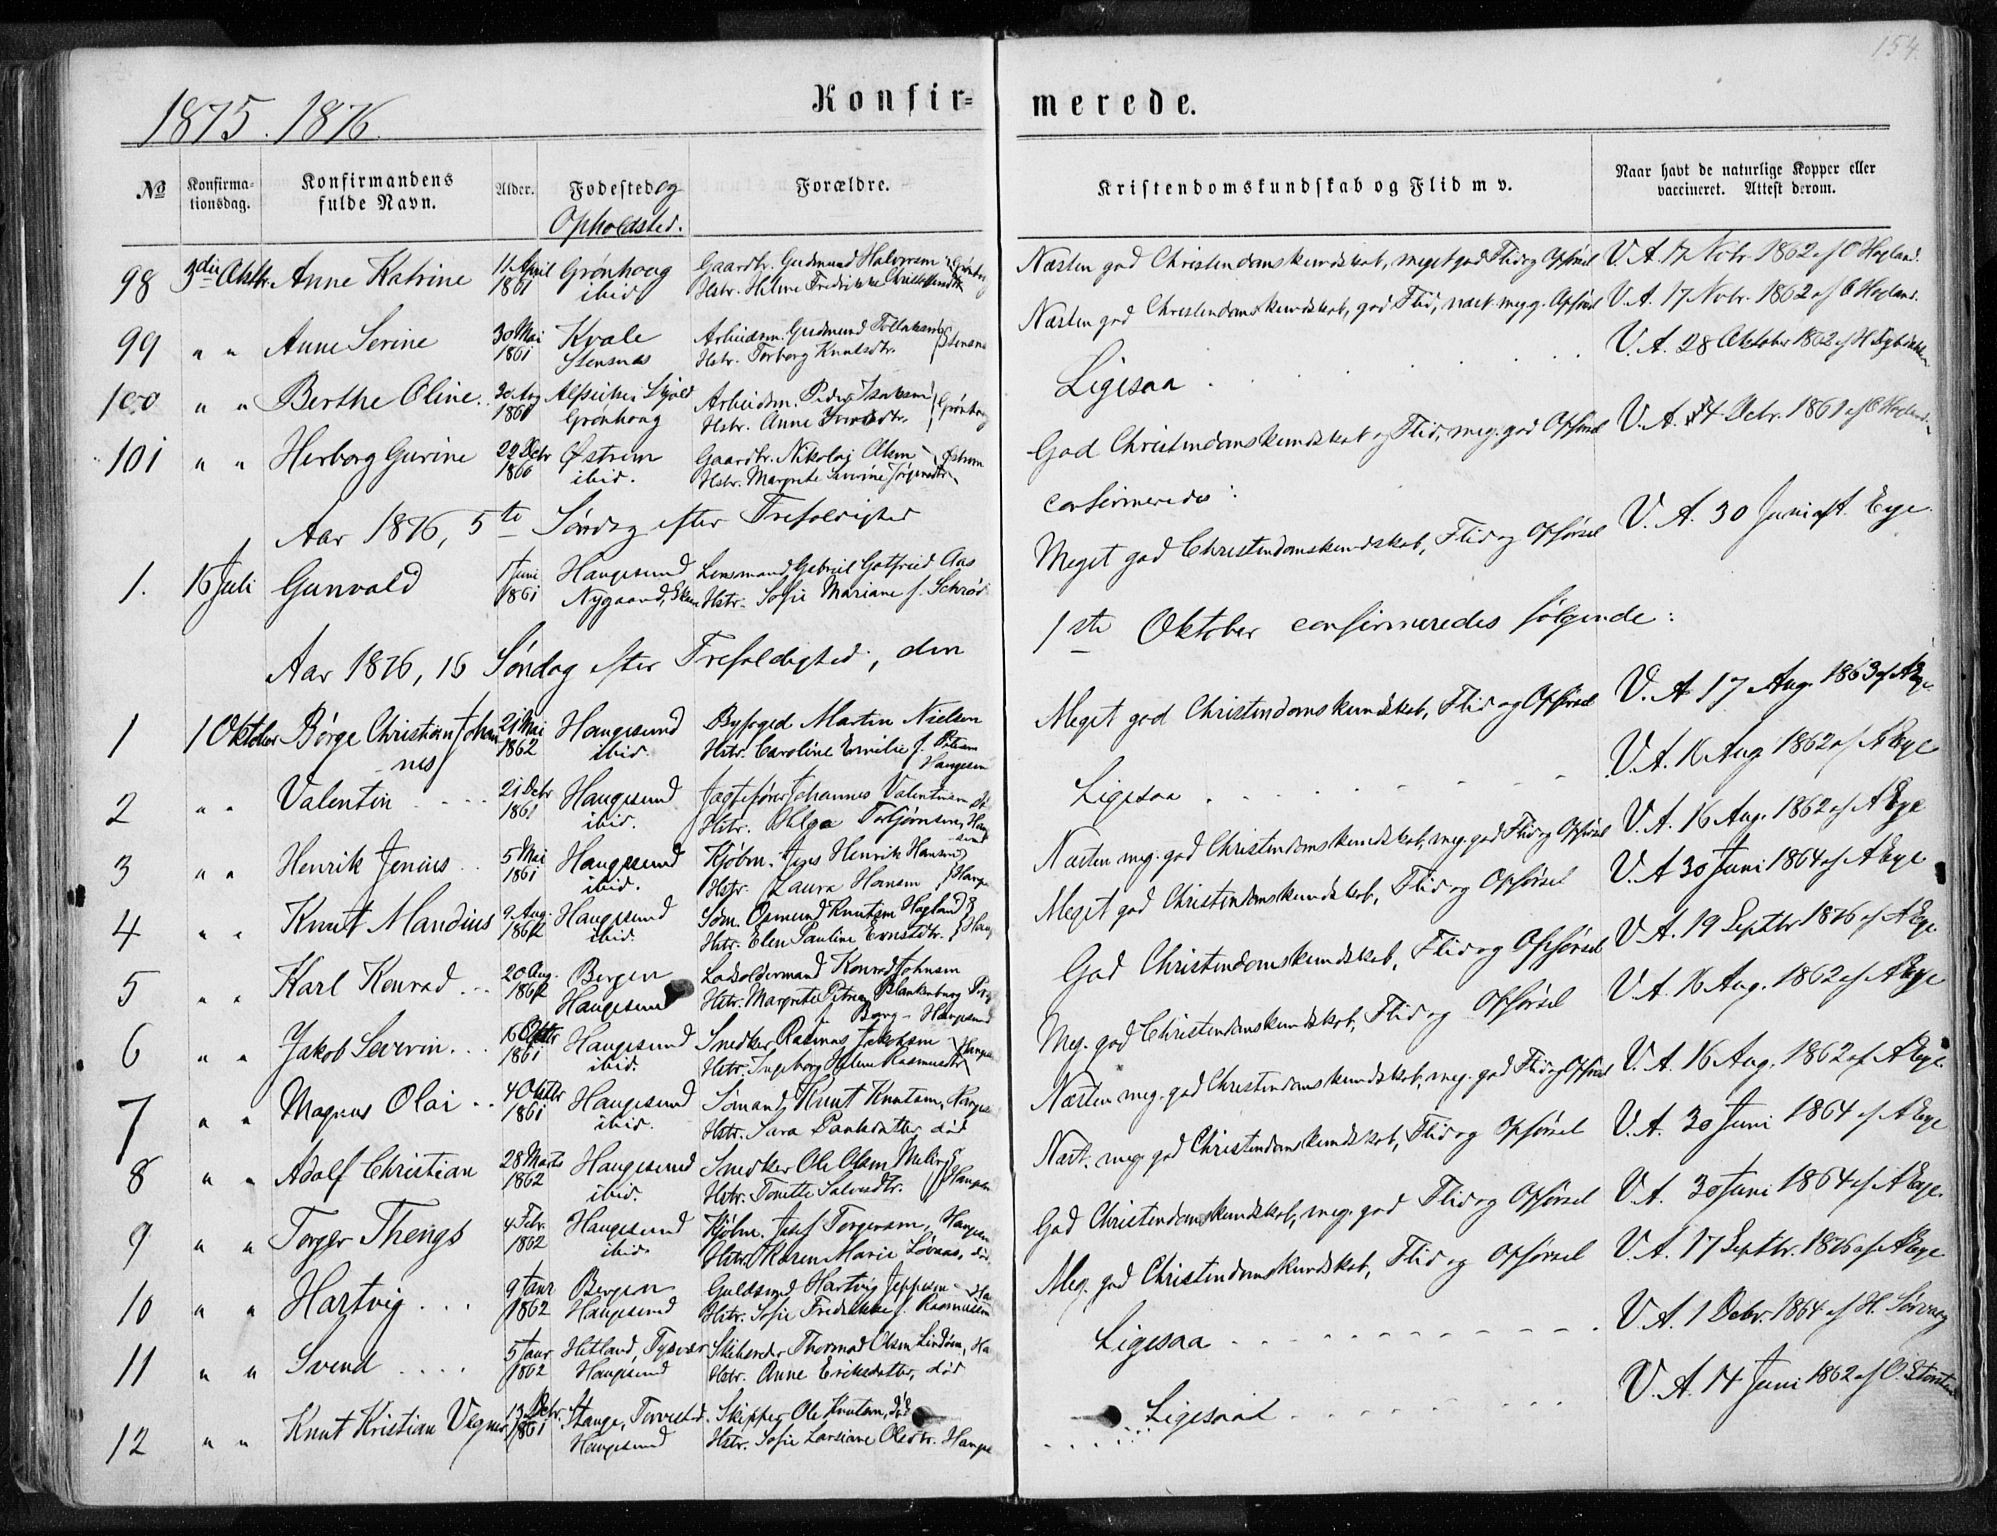 154.
1875. 1876.
Konfir=
merede.
No
Konfirma-
tionsdag.
Konfirmandens
fulde Navn.
Alder.
Fødested og
Opholdsted.
Forældre.
Kristendomskundskab og Flid m v.
Naar havt de naturlige Kopper eller
vaccineret. Attest derom.
98 3die Oktbr. Anne Katrine 11 April 1861 Grønhoug ibid Gaardbr. Gudmund Halvorsen Hstr. Helene Fredrikke
Næsten god Christendomskundskab, meget god Flid og Opførsel V. A. 17 Novbr. 1862 af O Hogland.
99 " " Anne Serine 30 Mai 1861 Kvale Stensnæs Arbeidsm. Gudmund Tollaksen Hstr. Torborg Knutsdtr. Stensnæs
Næsten god Christendomskundskab, god Flid, næst. meg g. Opførsel V. A. 17 Novbr. 1862 af O Hogland.
100 " " Berthe Oline. 20 Aug 1860 Skjold Grønhoug Arbeidsm. Peder Isaksen Hstr. Anne Grønhoug
Ligesaa V. A. 28 Oktober 1862 af H
101 " " Herborg Gurine 22 Debr 1860 Østrem ibid. Gaardbr. Nikolai Olsen Hstr. Margrete Serine Jørgensdtr Østrem
God Christendomskundskab og Flid, meg. god Opførsel V. A. 4 Debr. 1861 af O Hogland
Aar 1876, 5te Søndag efter Trefoldighed confirmeredes:
1. 16 Juli Gunvald 1 Juni 1861 Haugesund Nygaard, Lensmand Gabriel Gotfried Aas Hstr. Sofie Mariane f. Schrøder
Meget god Christendomskundskab, Flid og Opførsel V. A. 30 Juni af A. Eye
Aar 1876, 16 Søndag efter Trefoldighed, den 1ste Oktober confirmeredes følgende:
1 1 Oktober Børge Christian Johannes 21 Mai 1862 Haugesund ibid. Byfoged Martin Nielsen Hstr. Caroline Emilie f. Petersen Haugesun
Meget god Christendomskundskab, Flid og Opførsel V. A. 17 Aug. 1863 af A Eye
2 " " Valentin 21 Debr 1861 Haugesund ibid. Jagtefører Johannes Valentinsen Hstr. Helga Torbjørnsen, Haugesund
Ligesaa V. A. 16 Aug 1862 af A Eye
3 " " Henrik Jenius 5 Mai 1861 Haugesund ibid. Kjøbm. Jens Henrik Hansen Hstr. Laura Hansen Hauge
Næsten meg. god Christendomskundskab, meg. god Flid og Opførsel V. A. 16 Aug. 1862 af A Eye
4 " " Knut Mandius 9 Aug. 1862 Haugesund ibid. Søm. Osmund Knutsen Hagland Hstr. Elen Pauline Ernstdtr. Haug
Meget god Christendomskundskab, Flid og Opførsel V. A 30 Juni 1864 af A Eye
5 " " Karl Konrad 20 Aug. 1862 Bergen Haugesund Lasoldermand Konrad Johnsen Hstr. Margrete Petrea Blankenborg Berg - Haugesund
God Christendomskundskab, Flid og Opførsel V. A. 19 Septbr 1876 af A Eye
6 " " Jakob Severin 16 1861 Haugesund ibid. Snedker Rasmus Jakobsen Hstr. Ingeborg Helene Rasmusdtr Hauge
Meg. god Christendomskundskab, Flid og Opførsel V. A. 16 Aug. 1862 af A Eye
7 " " Magnus Olai 4 Oktbr 1861 Haugesund ibid. Sømand Knut Knutsen, Hauges Hstr. Sara død
Næsten meg. god Christendomskundskab, meg. god Flid og Opførsel V. A. 16 Aug. 1862 af A Eye
8 " " Adolf Christian 28 Marts 1862 Haugesund ibid. Snedker Ole Olsen Hstr. Tonette Haugesu
Næst. meg. god Christendomskundskab, Flid og Opførsel V. A. 30 Juni 1864 af A Eye
9 " " Torger Thengs 4 Febr. 1862 Haugesund ibid. Kjøbm. Josef Torgersen, Haugesu Hstr. Karen Marie død.
God Christendomskundskab, meg. god Flid og Opførsel V. A. 30 Juni 1864 af A Eye.
10 " " Hartvig 9 Janr 1862 Bergen Haugesund Guldsmed Hartvig Jeppesen - Hau Hstr. Sofie Fredrikke f. Rasmussen
Meg. god Christendomskundskab, Flid og Opførsel V. A. 17 Septbr. 1876 af A Eye
11 " " Svend 5 Janr 1862 Hetland, Tysvær Haugesund Thormod Olsen Hstr. Anne Eriksdatter, død
Ligesaa V. A. 1 Debr. 1864 af H. Sørvaag
12 " " Knut Kristian Vegner 13 Debr. 1861 Stange, Torvestd. Haugesund Skipper Ole Knutsen, død Hstr. Sofie Larsiane Olsdtr. Hauge
Ligesaa V. A. 14 Juni 1862 af O.